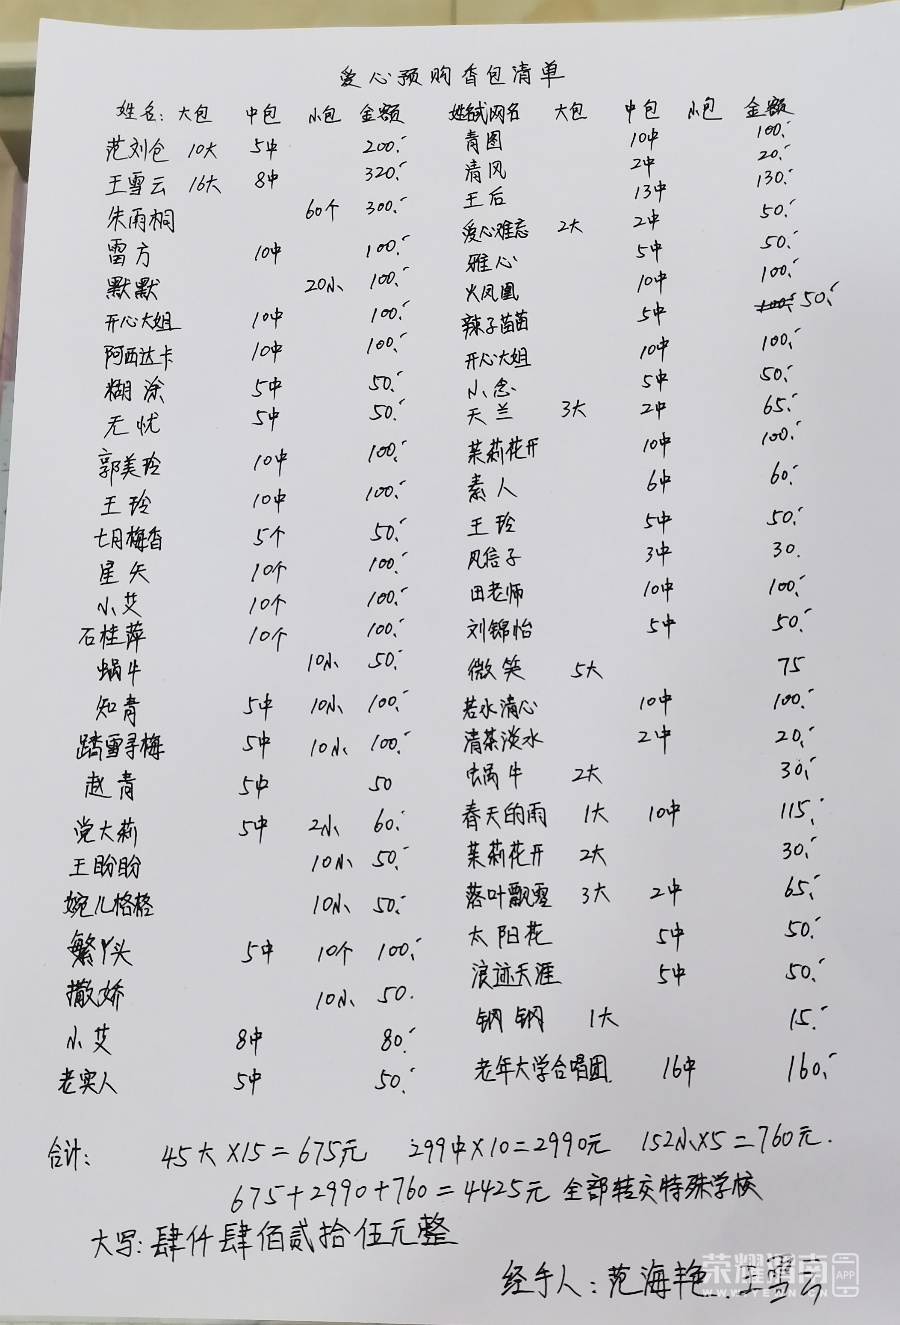 爱心预购香包清单
姓名: 大包 中包 小包 金额 姓名或网名 大包 中包 小包 金额
范刘仓 10大 5中 200.- 青图 10中 100.-
王雪云 16大 8中 320.- 清风 2中 20.-
朱雨桐 60个 300.- 王后 13中 130.-
雷方 10中 100.- 爱心难忘 2大 2中 50.-
默默 20小 100.- 雅心 5中 50.-
开心大姐 10中 100.- 火凤凰 10中 100.-
阿西达卡 10中 100.- 辣子苗苗 5中 50.-
糊涂 5中 50.- 开心大姐 10中 100.-
无忧 5中 50.- 小念 5中 50.-
郭美玲 10中 100.- 天兰 3大 2中 65.-
王玲 10中 100.- 茉莉花开 10中 100.-
七月梅香 5个 50.- 素人 6中 60.-
星矢 10个 100.- 王玲 5中 50.-
小艾 10个 100.- 风信子 3中 30.
石桂萍 10个 100.- 田老师 10中 100.-
蜗牛 10小 50.- 刘锦怡 5中 50.-
知青 5中 10小 100.- 微笑 5大 75
踏雪寻梅 5中 10小 100.- 若水清心 10中 100.-
赵青 5中 50 清茶淡水 2中 20.-
党大莉 5中 2小 60.- 蜗牛 2大 30.-
王盼盼 10小 50.- 春天的雨 1大 10中 115.-
婉儿格格 10小 50.- 茉莉花开 2大 30.-
繁丫头 5中 10个 100.- 落叶飘零 3大 2中 65.-
撒娇 10小 50. 太阳花 5中 50.-
小艾 8中 80.- 浪迹天涯 5中 50.-
老实人 5中 50.- 钢钢 1大 15.-
老年大学合唱团. 16中 160.-
合计: 45大×15=675元 299中×10=2990元 152小×5=760元.
675+2990+760=4425元 全部转交特殊学校
大写:肆仟肆佰贰拾伍元整
经手人:范海艳、王雪云
荣耀渭南 APP